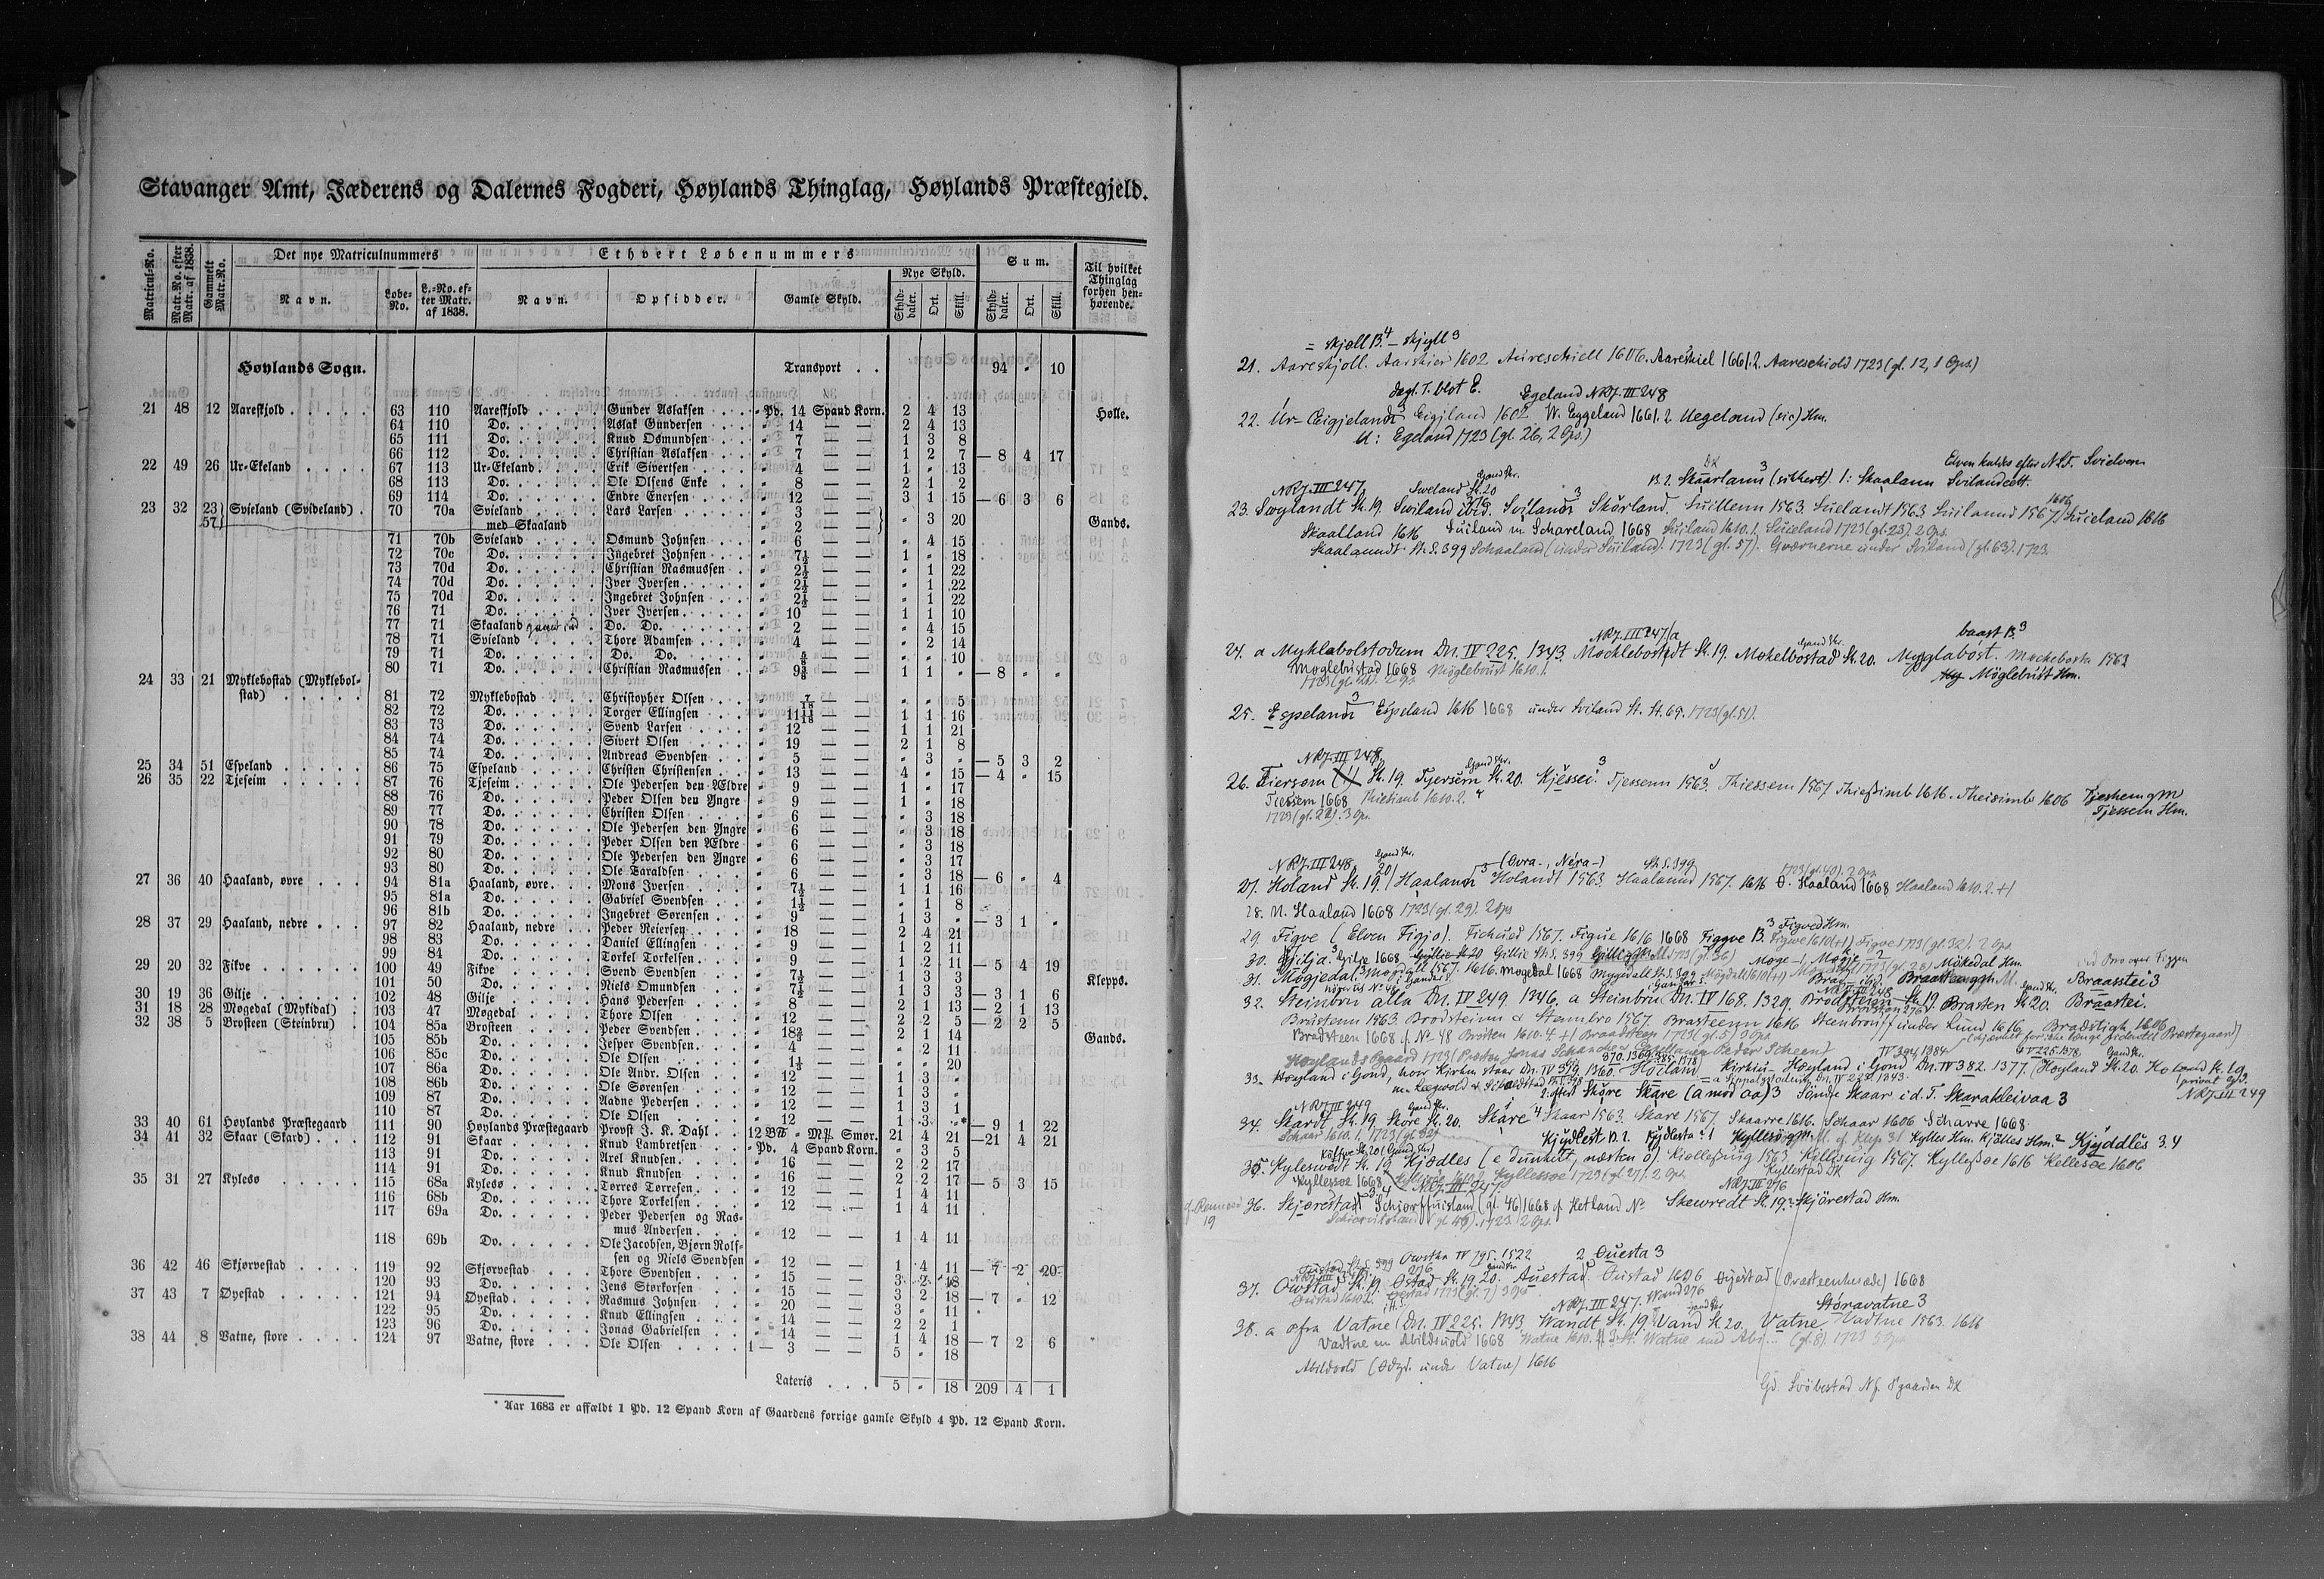 Stavanger Amt, Jæderens og Dalernes Fogderi, Høylands Thinglag, Høylands Præstegjeld.
Matricul-No. Matr.No. efter Matr. af 1838. Gammelt Matr.No. Det nye Matriculnummers Ethvert Løbenummers Sum. Til hvilket Thinglag forhen henhørende.
Navn. Løbe-No. L.-No. efter Matr. af 1838. Navn. Opsidder. Gamle Skyld. Nye Skyld. Skylddaler. Ort. Skill. Skylddaler. Ort. Skill.
Høylands Sogn. Transport . . 94 " 10
21 48 12 Aareskjold 63 110 Aareskjold Gunder Aslaksen " Pd. 14 Spand Korn. 2 4 13 Holle.
64 110 Do. Aslak Gundersen " 14 — — 2 4 13
65 111 Do. Knud Osmundsen " 7 — — 1 3 8
66 112 Do. Christian Aslaksen " 7 — — 1 2 7 — 8 4 17
22 49 26 Ur-Ekeland 67 113 Ur-Ekeland Erik Sivertsen " 4 — — 1 " 13
68 113 Do. Ole Olsens Enke " 8 — — 2 1 2
69 114 Do. Endre Enersen " 12 — — 3 1 15 — 6 3 6
23 32 23 57 Svieland (Svideland) 70 70a Svieland Lars Larsen " 3 — — Gands.
med Skaaland " 2 — — " 3 20
71 70b Svieland Osmund Johnsen " 6 — — " 4 15
72 70c Do. Ingebret Johnsen " 7½ — — 1 " 18
73 70d Do. Christian Rasmussen " 2½ — — " 1 22
74 70d Do. Iver Iversen " 2½ — — " 1 22
75 70d Do. Ingebret Johnsen " 2½ — — " 1 22
76 71 Do. Iver Iversen " 10 — — 1 1 10
77 71 Skaaland Do. Do. " 2 — — " 4 15
78 71 Svieland Thore Adamsen " 4 — — " 2 14
79 71 Do. Do. Do. " ⅝ — — " " 10
80 71 Do. Christian Rasmussen " 9⅜ — — 1 1 " — 8 " "
24 33 21 Myklebostad (Myklebolstad) 81 72 Myklebostad Christopher Olsen " 7/18 — — " " 5
82 72 Do. Torger Ellingsen " 11 11/18 — — 1 1 16
83 73 Do. Svend Larsen " 12 — — 1 1 21
84 74 Do. Sivert Olsen " 19 — — 2 1 8
85 74 Do. Andreas Svendsen " 5 — — " 3 " — 5 3 2
25 34 51 Espeland 86 75 Espeland Christen Christensen " 13 — — 4 " 15 — 4 " 15
26 35 22 Tjeseim 87 76 Tjeseim Ole Pedersen den Ældre " 9 — — 1 " 17
88 76 Do. Peder Olsen den Yngre " 9 — — 1 " 18
89 77 Do. Christen Olsen " 6 — — " 3 18
90 78 Do. Ole Pedersen den Yngre " 6 — — " 3 18
91 79 Do. Peder Olsen den Ældre " 6 — — " 3 18
92 80 Do. Ole Pedersen den Yngre " 6 — — " 3 17
93 80 Do. Ole Taraldsen " 6 — — " 3 18 — 6 " 4
27 36 40 Haaland, øvre 94 81a Haaland, øvre Mons Iversen " 7½ — — 1 1 16
95 81a Do. Gabriel Svendsen " 1½ — — " 1 8
96 81b Do. Ingebret Sørensen " 9 — — 1 3 " — 3 1 "
28 37 29 Haaland, nedre 97 82 Haaland, nedre Peder Reiersen " 18 — — 2 4 21
98 83 Do. Daniel Ellingsen " 9 — — 1 2 11
99 84 Do. Torkel Torkelsen " 9 — — 1 2 11 — 5 4 19
29 20 32 Fikve 100 49 Fikve Svend Svendsen " 7½ — — 1 3 3 Klepps.
101 50 Do. Niels Omundsen " 7½ — — 1 3 3 — 3 1 6
30 19 36 Gilje 102 48 Gilje Hans Pedersen " 8 — — 2 1 13 — 2 1 13
31 18 28 Møgedal (Mykidal) 103 47 Møgedal Thore Olsen " 12 — — 2 2 5 — 2 2 5
32 38 5 Brosteen (Steinbru) 104 85a Brosteen Peder Svendsen " 18⅔ — — 2 1 14 Gands.
105 85b Do. Jesper Svendsen " 4 — — " 2 11
106 85c Do. Ole Olsen " 1⅓ — — " " 20
107 86a Do. Ole Andr. Olsen " 12 — — 1 3 "
108 86b Do. Ole Sørensen " 12 — — 1 3 "
109 87 Do. Aadne Pedersen " 12 — — 1 3 1
110 87 Do. Ole Olsen " 12 — — 1 3 "* — 9 1 22
33 40 61 Høylands Præstegaard 111 90 Høylands Præstegaard Provst J. K. Dahl 21 4 21 — 21 4 21
34 41 32 Skaar (Skard) 112 91 Skaar Knud Lambretsen " Pd. 4 Spand Korn. " 3 5
113 91 Do. Arel Knudsen " 16 — — 2 2 17
114 91 Do. Knud Knudsen " 16 — — 2 2 17 — 5 3 15
35 31 27 Kyleso 115 68a Kyleso Torres Torresen " 12 — — 1 4 11
116 68b Do. Thore Torkelsen " 12 — — 1 4 11
117 69a Do. Peder Pedersen og Rasmus Andersen " 12 — — 1 4 11
118 69b Do. Ole Jacobsen, Bjørn Rolfsen og Niels Svendsen " 12 — — 1 4 11 — 7 2 20
36 42 46 Skjørvestad 119 92 Skjørvestad Thore Svendsen " 15 — — 3 2 18
120 93 Do. Jens Storkorsen " 15 — — 3 2 18 — 7 " 12
37 43 7 Øyestad 121 94 Øyestad Rasmus Johnsen " 20 — — 3 " 11
122 95 Do. Knud Ellingsen " 14 — — 2 2 1
123 96 Do. Jonas Gabrielsen " 14 — — 1 4 18 — 7 2 6
38 44 8 Vatne, store 124 97 Vatne, store Ole Olsen 1 — 3 — — 5 " 18
Lateris . . . 5 " 18 209 4 1
* Aar 1683 er affældt 1 Pd. 12 Spand Korn af Gaardens forrige gamle Skyld 4 Pd. 12 Spand Korn.
= Skjøll B.4 – Skjyll 3
21. Aareskjoll. Aarskier 1602 Aureschiell 1606. Aareskiel 1661.2. Aareschiold 1723 (gl. 12, 1 Ops.)
dagl. T. blot E. Egeland NRJ. III 248
22. Ur- Eigjeland Eigiland 1602 W. Eggeland 1661.2 Uegeland (sic) Hm.
U: Egeland 1723 (gl. 26, 2 Ops.)
Elven kaldes efter N.L.T. Svielven
B. 2. Skaarlann 3 (sikkert). 1: Skaalann
NRJ. III 247 Sweland St. 20
23. Swylandt St. 19. Swiland ibid. Sviland 3 Skorland. Suillenn 1563 Suelandt 1563 Suilannd 1567 Suieland 1616
Skaalland 1616 Suiland m Schareland 1668 Suiland 1610.1. Suieland 1723 (gl. 23). 2 Ops.
Skaalanndt St. S. 399 Schaaland (under Suiland). 1723 (gl. 57). Qværnerne under Sviland (gl. 63). 1723.
NRJ. III 247 baast B.3
24. a Myklabolstodum Dn. IV 225. 1343. Mocklebostadt St. 19. Mokelbostad St. 20. Myglabost. Mochebosta 1563
Moglebustad 1668 Møglebust 1610.1. Møglebust Hm.
1723 (gl. 21). 2 Ops.
25. Espeland 3 Espeland 1616 1668 under Sviland St. St. 69. 1723 (gl. 51).
NRJ. III 248
26. Tiersem St. 19. Tyersem St. 20. Kjessei 3 Tjessenn 1563. Thiessem 1567 Thiessimb 1616. Theisimb 1606 Tjeshem
Tiessem 1668 Thiesimb 1610.2. Tjessem Hm.
1723 (gl. 22). 3 Ops.
NRJ. III 248 (Øvra-, Néra-) St. S. 399 1723 (gl. 40). 2 Ops.
27. Holand St. 19. Haaland 3 Holandt 1563 Haalannd 1567. 1616 O. Haaland 1668 Haaland 1610. 2. +1
28. N. Haaland 1668 1723 (gl. 29). 2 Ops
29. Figve (Elven Figjo). Fichued 1567. Figue 1616 1668 Figgve B. 3 Figved Hm. Figve 1723 (gl. 32). 2 Ops.
30. Gilja 3 Gilje 1668 Gillie St. S. 399
31. Mogjedal 3 1567. 1616. Mogedal 1668 Møkedal Hm.
32. Steinbru alla Dn. IV 249. 1346. a Steinbru Dn. IV 168. 1329. St. 19 Brasten St. 20. Braastei.
Brustenn 1563. Brodsteinn 1567. Brasteenn 1616 Steinbro under Lund 1616 Brødstigh 1606
Brødsteen 1668 cf. No 48 Brosten 1610. 4. +1 Braadsteen 1723 (gl. 5) 3 Ops
33. Høyland i Gond, hvor Kirken staar Dn. IV 1360. Høiland Kirkiu- Høyland i Gond Dn. IV 382. 1377. Høyland St. 20. St. 19.
Skare Skåre (a mod aa) 3 Søndre Skaar i d. T. Skaraleivaa 3
NRJ. III 249
34. Skardt St. 19 Skore St. 20. Skåre 4 Skaar 1563. Skare 1567. Skaarre 1616. Schaar 1606 Scharre 1668.
Schaar 1610. 1. 1723 (gl. 32)
Kjydlest B. 2. Kyllesø Kylles Hm. Kjølles Hm.2 Kjyddles 3.4
35. Kyleswedt St. 19 Kjødles (e dunkelt, næsten ø). Kiøllessuig 1563. Kellesuig 1567. Kyllessøe 1616 Kellesøe 1606
Kyllesøe 1668 Kyllessøe 1723 (gl. 27). 2 Ops.
36. Skjørestad (gl. 46) 1668 cf. Hetland No Skewredt St. 19 Skjørestad Hm.
(gl. 46). 1723. 2 Ops.
Owstha IV 795. 1522 2 Øuesta 3
37. Owstad St. 19 Østad St. 19. 20. Auestad Øustad 1606 Øyestad (Præsteenkesæde) 1668
NRJ. III 247. Wand 276 Storavatne 3
38. a øfra Vatne Dn. IV 225. 1343 Wandt St. 19 Vand St. 20. Vatne Vadtne 1563. 1616
Vadtne m Abildsuold 1668 Watne 1610. Watne med (gl. 8). 1723
Abildvold (Ødegd. under Vatne) 1616
Gd. Svöbestad N f. Pgaarden DK